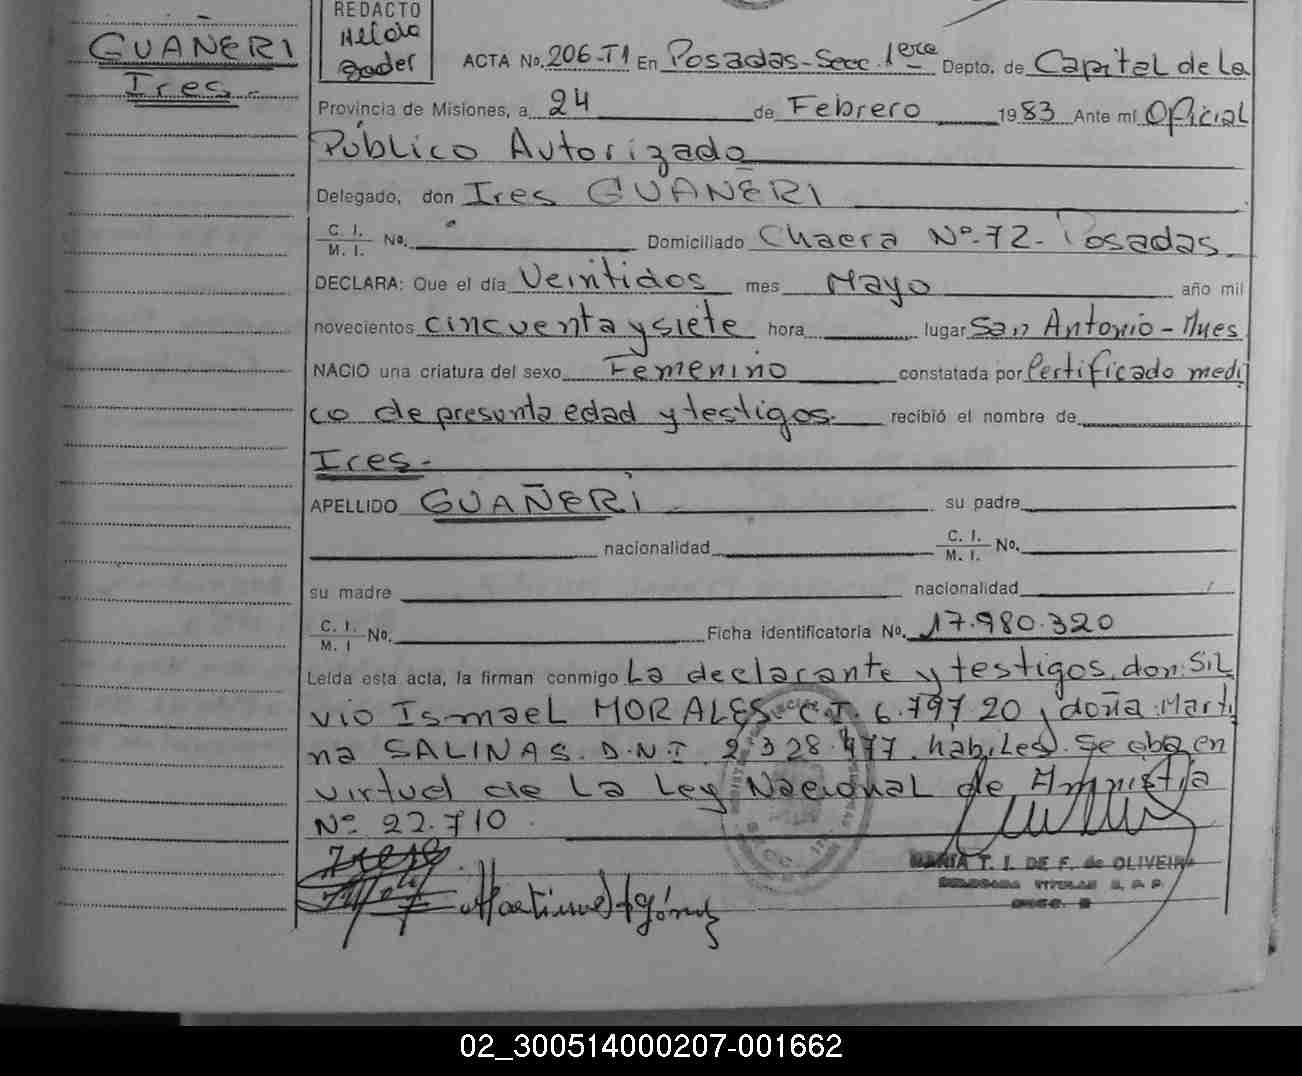 GUAÑERI
Ires.-
REDACTO
ACTA No. 206-T1 En Posadas-Secc. 1era Depto. de Capital de La
Provincia de Misiones, a 24 de Febrero 1983 Ante mí Oficial
Público Autorizado
Delegado, don Ires GUAÑERI
C. I.
M. I. No. Domiciliado Chacra Nº-72- Posadas
DECLARA: Que el día Veintidos mes Mayo año mil
novecientos cincuenta y siete hora lugar San Antonio - Mnes
NACIO una criatura del sexo Femenino constatada por Certificado medi
co de presunta edad y testigos. recibió el nombre de
Ires.-
APELLIDO GUAÑERI su padre
nacionalidad C. I.
M. I. No.
su madre nacionalidad
C. I.
M. I No. Ficha identificatoria No. 17.980.320
Leída esta acta, la firman conmigo La declarante y testigos, don: SiL
vio Ismael MORALES CI 6.797.20, doña: Marti
na SALINAS. D.N.I. 2.328.477. hábiles. Se obra en
virtud de La Ley Nacional de Amnistía
Nº 22.710
MARIA T. I. DE F. de OLIVEIRA
DELEGADA TITULAR
02_300514000207-001662